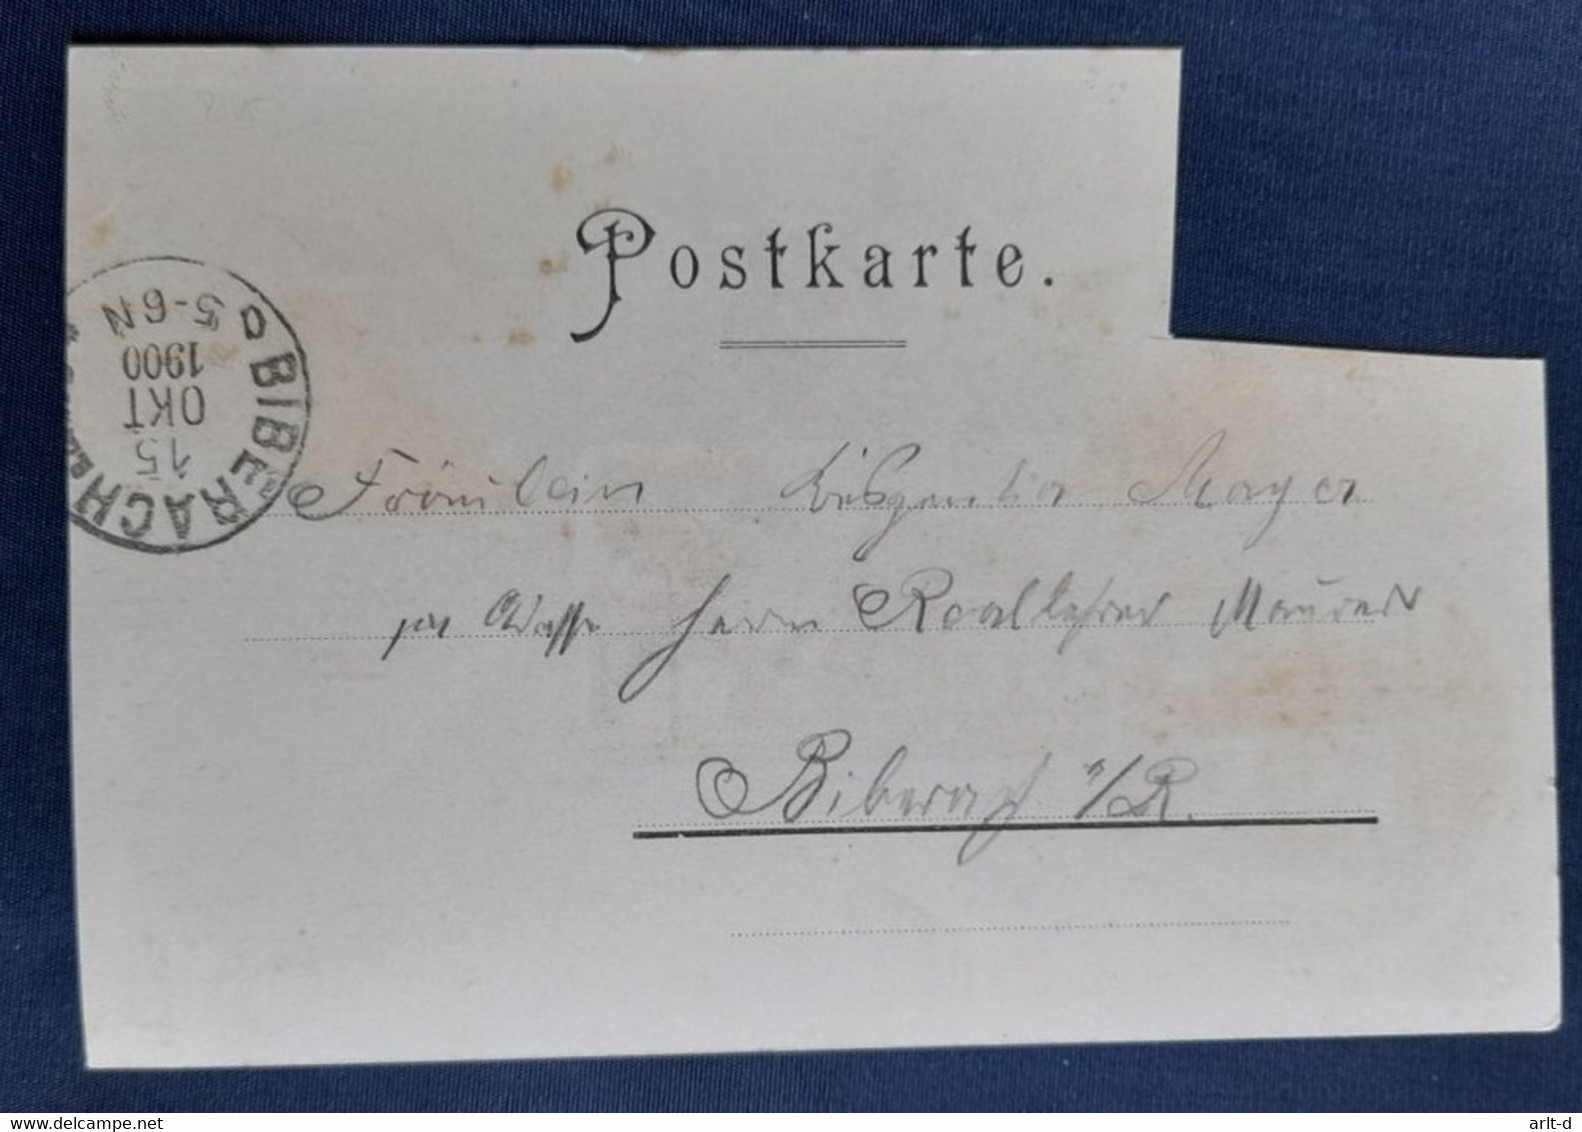 Postkarte.
BIBERACH
15
OKT
1900
5-6N
Fräulein Mayer
per Adresse Herrn Reallehrer Maurer
Biberach a/R.
www.delcampe.net
arlt-d